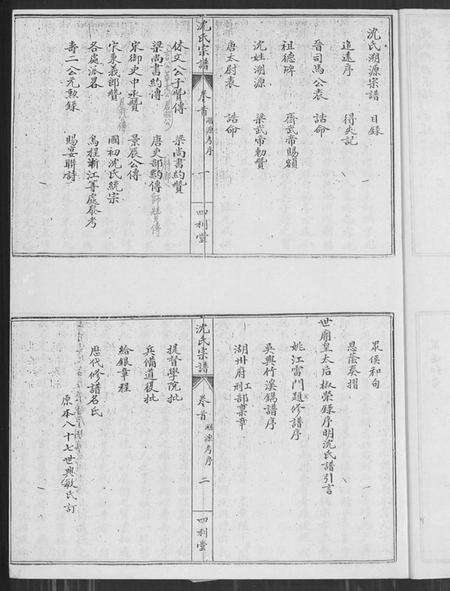 沈氏溯源宗譜 目錄
追遠序 得失記
晉司馬公表 誥命
祖德碑 齊武帝賜蹟
沈姓溯源 梁武帝勅贊
唐太尉表 誥命
沈氏宗譜 卷首 溯源考序 一 四利堂
休文公子賢傳 梁尚書約贊
梁尚書約傳 唐吏部約傳
宋御史中丞贊 景辰公傳
宋東義郎贊 國初沈氏統宗
各處派名 烏程浙江等處發考
壽二公免敕錄 賜宴聯詩
眾侯和句
恩蔭奏摺
世廟皇太后椒榮錄序 明沈氏譜引言
姚江雷門題修譜序
吳興竹溪鐫譜序
湖州府刑工部稟章
沈氏宗譜 卷首 溯源考序 二 四利堂
提督學院批
兵備道獲批
給銀章程
歷代修譜名氏
原本八十七世興敏氏訂